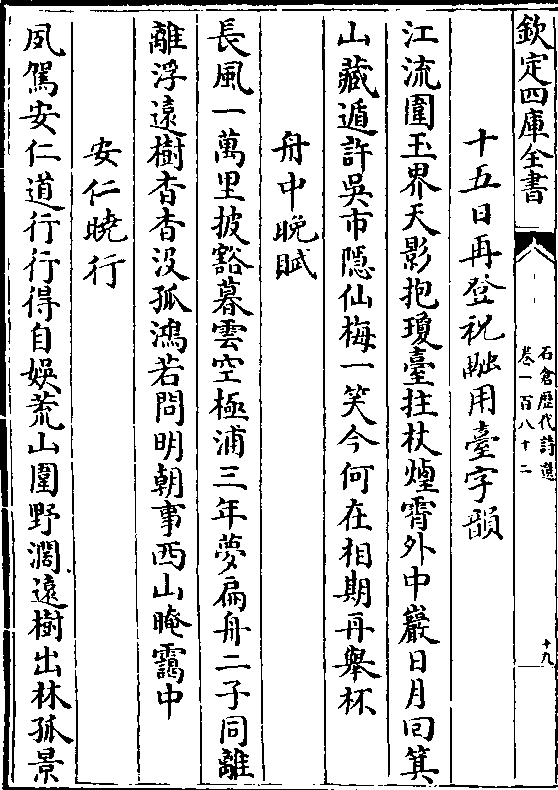 欽定四庫全書
石倉歷代詩選
卷一百八十二
十九
十五日再登祝融用臺字韻
江流圍玉界天影抱瓊臺拄杖煙霄外中巖日月回箕
山藏遁許吳市隱仙梅一笑今何在相期再舉杯
舟中晚賦
長風一萬里披豁暮雲空極浦三年夢扁舟二子同離
離浮遠樹杳杳沒孤鴻若問明朝事西山晻靄中
安仁曉行
夙駕安仁道行行得自娛荒山圍野濶遠樹出林孤景